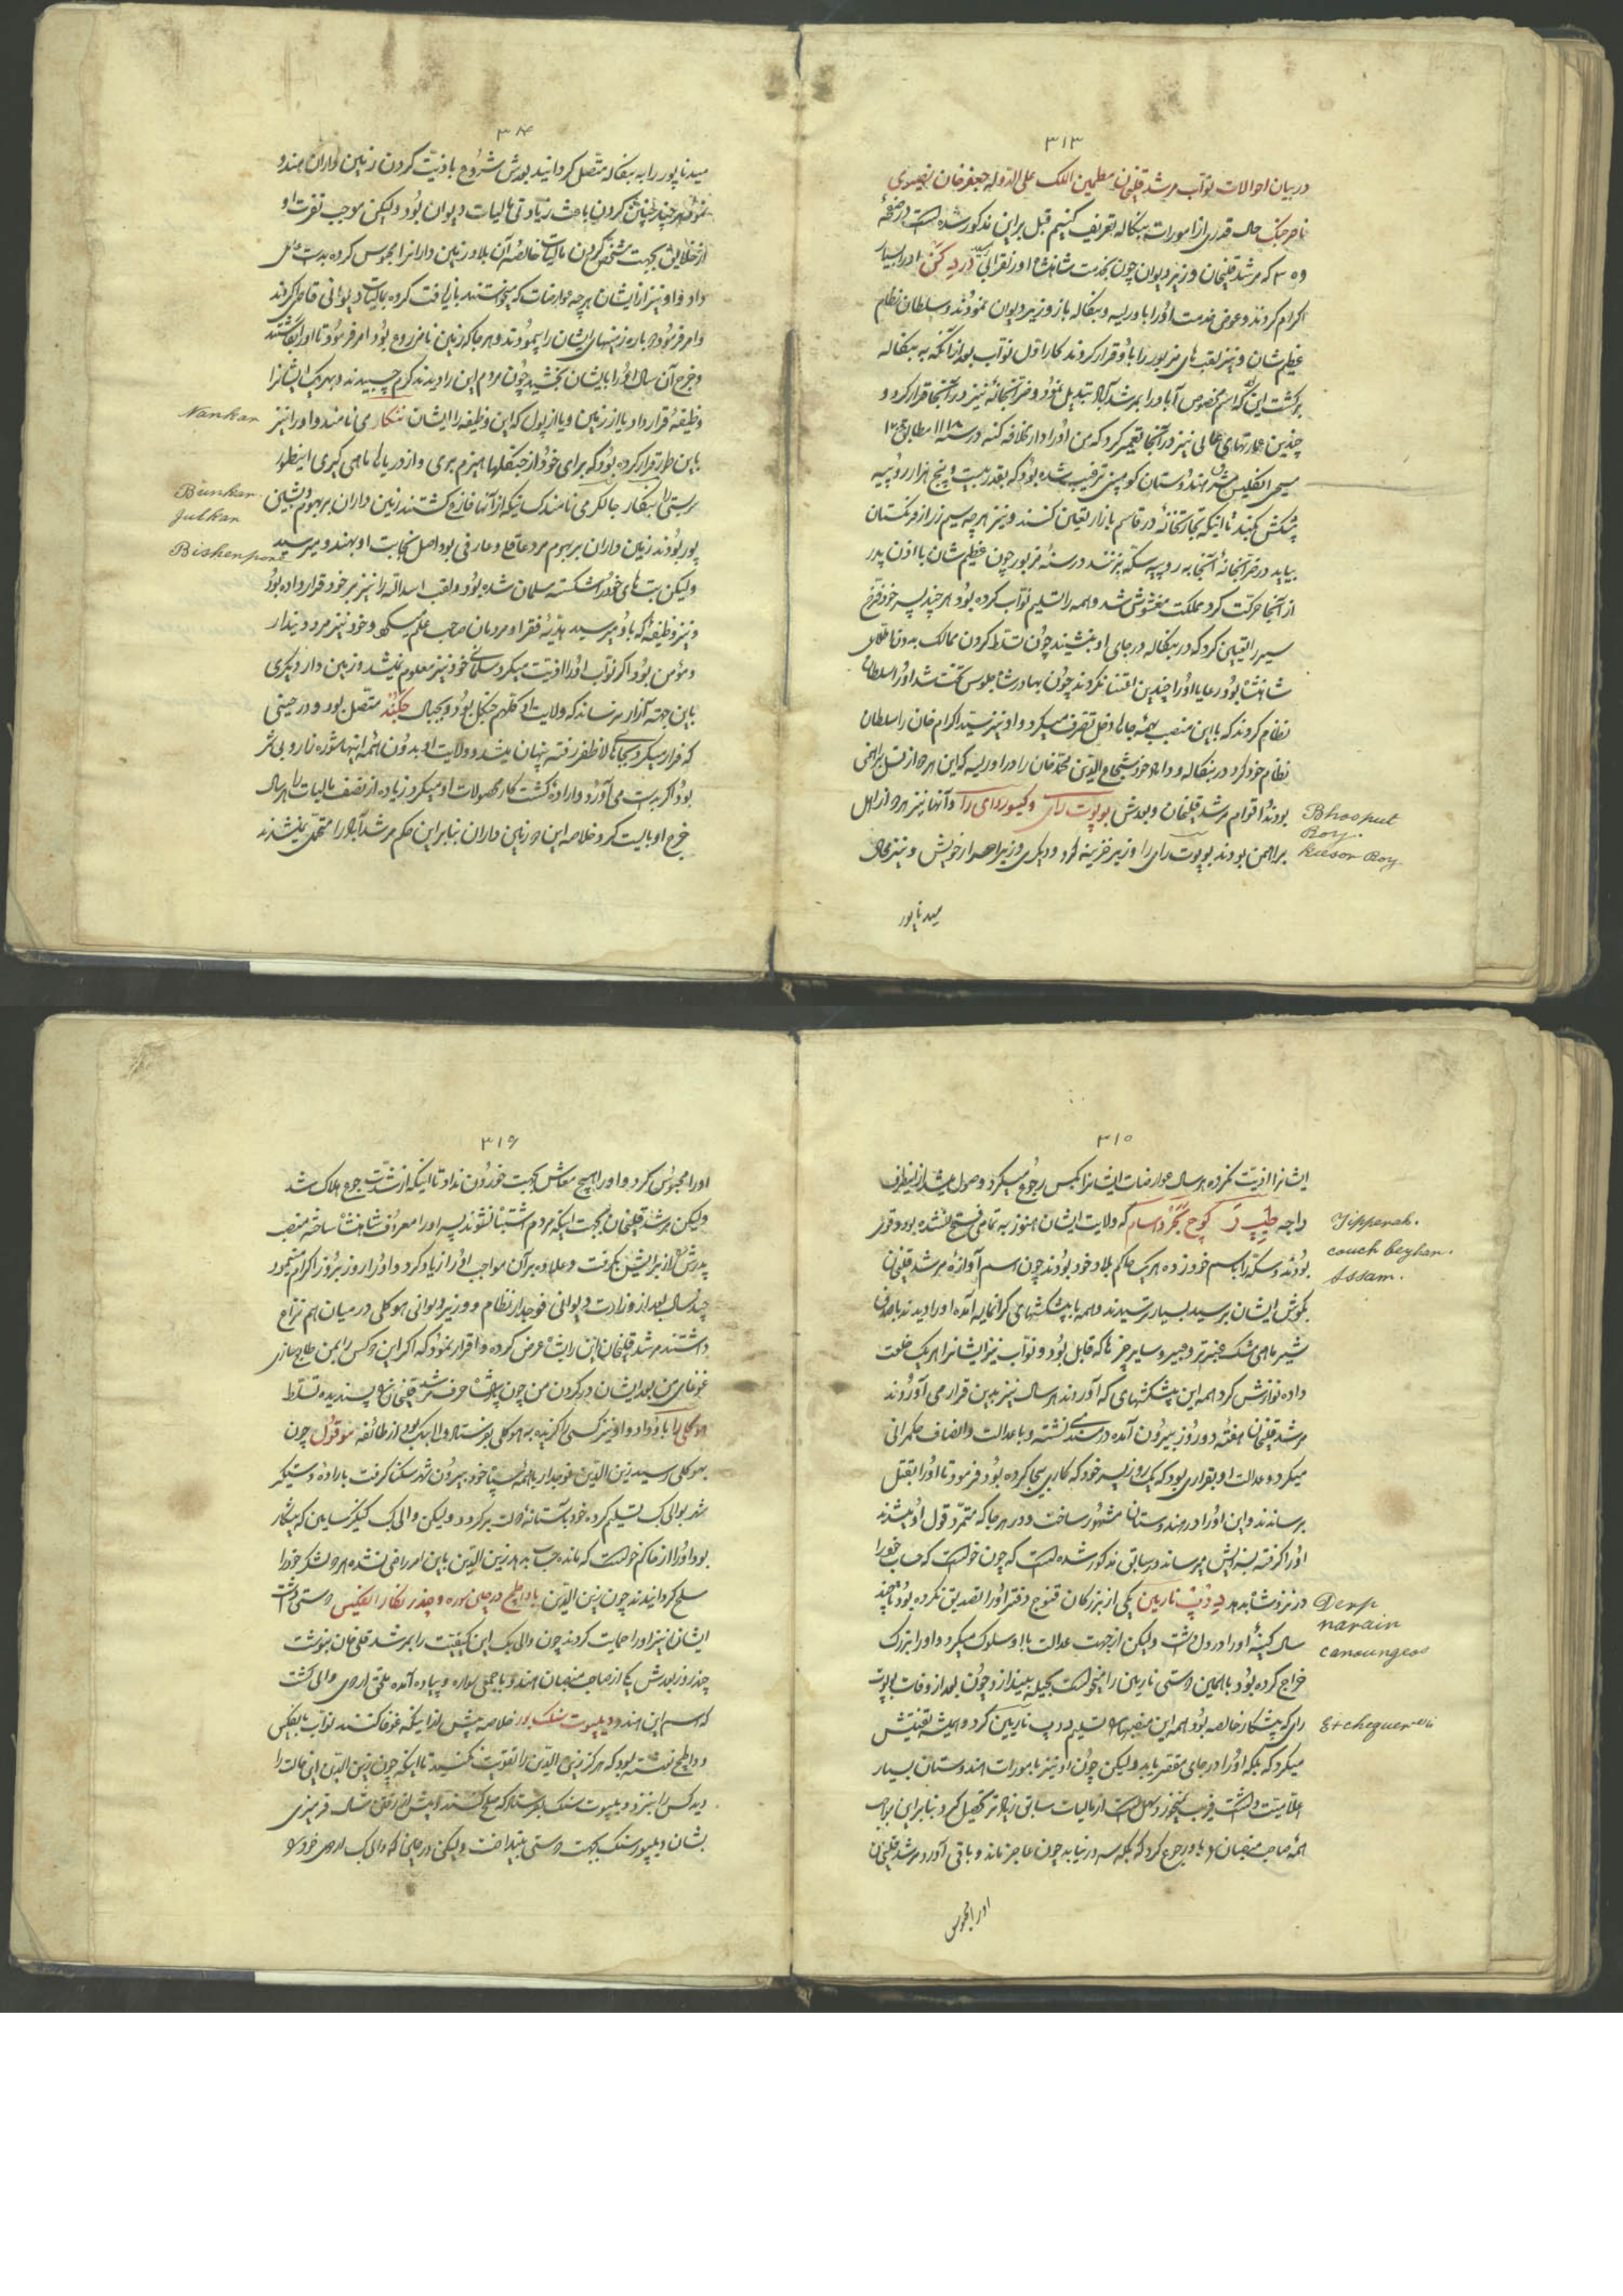 ٣١٣
در بیان احوالات نوآب مرشد قلیخان مطمین الملک علی الدوله جعفر خان نصیری
ناصر جنک حال قدری از امورات بنکاله تعریف کنیم قبل بر این مذکور شده است در صفحهٔ
که مرشد قلیخان وزیر دیوان چون بخدمت شاهنشاه اورنقزالب در دکن او را بسیار
اکرام کردند و عوض خدمت او را با وریسه و بنکاله باز وزیر دیوان نمودند و سلطان نظام
عظیم شان و نیز لقب های مزبور را باو قرار کردند کار اول نوآب بعد از آنکه به بنکاله
برکشت این که اسم مخصوص آباد را بمرشد آباد تبدیل نمود و ضرابخانهٔ نیز در آنجا قرار کرد و
چندین عمارتهای عالی نیز در آنجا تعمیر کرد که من او را دار الخلافه کنم در سنهٔ ١١١٨ مطابق
مسیحی انکلیس هندوستان کومپنی ترغیب شده بود که بقدر بیست و پنج هزار روپیه
پیشکش کنند تا اینکه تجارتخانهٔ در قاسم بازار تعین کنند و نیز هر چه سیم زر از فرنکستان
بیاید در ضرابخانهٔ آنجا به روپیه سکه بزنند در سنهٔ مزبور چون عظیم شان با اذن پدر
از آنجا حرکت کرد مملکت مغشوش شد و همه را تسلیم نوآب کرده بود هر چند پسر خود فرخ
سیر را تعیین کرد که در بنکاله در جای او بنشیند چون تسلط کردن ممالک بدون
شاهنشاه بود رعایا او را چندین اعتنا نکردند چون بهادر شاه جلوس تخت شد او را سلطان
نظام کردند که با این منصب بهمه جاها دخل تصرف میکرد و او نیز سید اکرام خان را سلطان
نظام خود کرد در بنکاله و داماد خود شجاع الدین محمد خان را در اوریسه که این هر دو از نسل
بودند اقوام مرشد قلیخان و بعدش بوپوت رای و کیسور رای را و آنها نیز هر دو از اهل
براهمن بودند بوپوت رای را وزیر خزینه کرد و دیکری وزیر اسرار خویش و نیز محال
میدناپور
Bhooput
Roy.
Kiesor Roy
٣١٤
میدناپور را به بنکاله متصل کردانید بعدش شروع باذیت کردن زمین داران هندو
نمود هر چند چنین کردن باعث زیادتی مالیات دیوان بود ولیکن موجب نفرت او
از خلایق بجهت مشخص کردن مالیات خالصهٔ آن بلاد زمین دارانرا محبوس کرده بدست
داد و او نیز از ایشان هر چه عوارضات که میخواستند بازیافت کرده بمالیات دیوانی داخل کردند
و امر فرمود دوباره زمینهای ایشان را پیمودند و هر جا که زمین نامزروع بود امر فرمود تا او را بکاشتند
و خرج آن سال او را بایشان بخشید چون مردم این را دیدند کرم چسبیدند و بهر یک ایشانرا
وظیفهٔ قرار داد یا از زمین و یا از پول که این وظیفه را ایشان ننکار می نامند و او را نیز
باین طور قرار کرده بود که برای خود از جنکلها هیزم بری و از دریاها ماهی کیری اینطور
رستی را بنکار جالکر می نامند کسانیکه از آنها فارغ کشتند زمین داران بربهوم و بشین
پور بودند زمین داران بربهوم مرد عاقل و عارفی بود اصل نجابت او بهندو میرسید
ولیکن بت های خود را شکسته مسلمان شده بود و لقب اسدالله را نیز بر خود قرار داده بود
و نیز وظیفهٔ که باو میرسید هدیهٔ فقرا و مردمان صاحب علم میکرد و خود نیز مرد دیندار
و مؤمن بود اکر نوآب او را اذیت میکرد مسلمانی خود نیز معلوم میشد و زمین دار دیکری
باین جهته آزار نرساند که ولایت او کلهم جنکل بود و بجبال جکند متصل بود و در حینی
که فرار میکرد بجای ملاحظه رفته پنهان میشد و ولایت او بدون همهٔ اینها شوره زار و بی ثمر
بود اکر بدست می آورد و ارادهٔ کشت کار محصولات او میکرد زیاده از نصف مالیات را هر سال
خرج او بایست کرد خلاصه این دو زمین داران بنابر این حکم مرشدآباد را متحمل نمیشدند
Nankar
Bunkar.
Julkar
Bishenpore
٣١٥
ایشانرا اذیت نکرده هر سال عوارضات ایشانرا بکس رجوع میکرد وصول میشد از
راجه طپپرَ کوچ بکر و اسام که ولایت ایشان هنوز به تمامی فتح نشده بود و قوی
بودند و سکه را باسم خود زده هر یک حاکم بلاد خود بودند چون اسم آوازهٔ مرشد قلیخان
بکوش ایشان برسید بسیار ترسیدند و همه با پیشکشهای کرانمایه آمده او را دیدند
شیر ماهی مشک عنبر و سایر چیزها که قابل بود و نوآب نیز ایشانرا هر یک خلعت
داده نوازش کرد همه این پیشکشهای که آوردند هر سال نیز بدین قرار می آوردند
مرشد قلیخان هفتهٔ دو روز بیرون آمده در مسند نشسته و با عدالت و انصاف حکمرانی
میکرد و عدالت او بقراری بود که یک روز پسر خود که کاری بیجا کرده بود فرمود تا او را بقتل
برسانند و این او را در هندوستان مشهور ساخت و در هر جا که متمرد قول او میشدند
او را کرفته بسزایش میرساند در سابق مذکور شده است که چون خواست که حساب خود را
در نزد شاه بدهد دپ نارین یکی از بزرکان قنوج دفتر او را تصدیق نکرده بود تا چند
سال کینهٔ او را در دل داشت ولیکن از جهت عدالت با او سلوک میکرد و او را بزرک
خراج کرده بود با همین دوستی نارین را میخواست بحیله بیندازد چون بعد از وفات بوپوت
رای که پیشکار خالصه بود همه این منصبها را تسلیم دپ نارین کرد و همیشه تفتیش
میکرد که بلکه او را در جای مقصر یابد ولیکن چون او نیز بامورات هندوستان بسیار
همه صاحب منصبان را باو رجوع کرد که بلکه سر در نیابد چون عاجز ماند و باقی آورد مرشد قلیخان
او را محبوس
Tipperah.
couch beyhar.
Assam.
Derp
narain
canoungeos
Exchequer
٣١٦
او را محبوس کرد و او را هیچ معاش بجهت خوردن نداد تا اینکه از شدت جوع هلاک شد
ولیکن مرشد قلیخان بجهت اینکه مردم اشتباه نشوند پسر او را معروف شاهنشاه ساخته منصب
پدرش را از برایش کرفت و علاوه بر آن مواجب او را زیاد کرد و او را روز بروز اکرام مینمود
چند سال بعد از وزارت دیوانی فوجدار نظام و وزیر دیوانی هوکلی در میان هم نزاع
داشتند مرشد قلیخان این را بشاه عرض کرده و اقرار نمود که اکر این دو کس را بمن
غوغای من بعد ایشان در کردن من چون پادشاه حرف مرشد قلیخان را پسندیده تسلط
هوکلی را باو داد و او نیز کسی را کزیده به هوکلی بفرستاد والی بک بود از طائفه موقول چون
بهوکلی رسید زین الدین فوجدار با همه سپاه خود بیرون شهر سکنا کرفت باراده دستکیر
شهر بوالی بک تسلیم کرده خود باستانهٔ دولت برکردد ولیکن والی بک کینکر سایین که پیشکار
بود او را از حاکم خواست که مانده حساب بدهد زین الدین باین امر راضی نشده هر دو لشکر خود را
مسلح کردانیدند چون زین الدین با ولنج در چان سوره و چندر نکار انکلیس دوستی داشت
ایشان نیز او را حمایت کردند چون والی بک این کیفیت را بمرشد قلیخان بنوشت
چند روز بعدش یکی از صاحب منصبان هندو با جمعی سواره و پیاده آمده ملحق اردوی والی کشت
که اسم این هندو دیلپوت سنک بود خلاصه پیش از اینکه غوغا کنند نوآب بانکلیس
و ولنج نوشته بود که هرکز زین الدین را تقویت نکنید تا اینکه چون زین الدین این حالت را
دید کس را بنزد دیلپوت سنک بفرستاد که صلح کنند
بشان دیلپور سنک بجهت دوستی بینداخت ولیکن در حینی که والی بک اردوی خود را